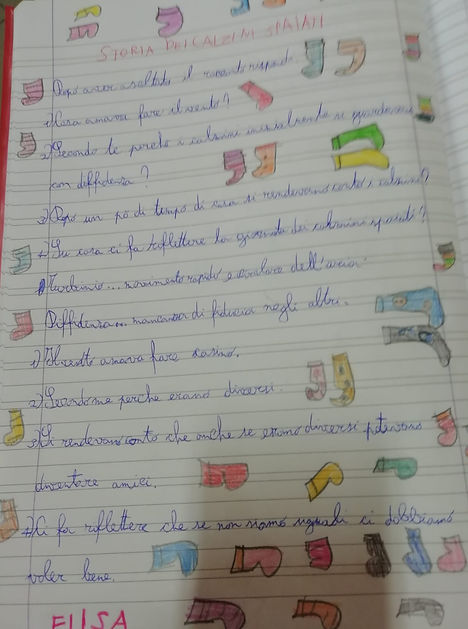 STORIA DEI CALZINI SPAIATI
Dopo aver ascoltato il racconto rispondi.
1) Cosa amava fare il vento?
2) Secondo te perché i calzini inizialmente si guardavano
con diffidenza?
3) Dopo un po di tempo di cosa si rendevano conto i calzini?
4) Su cosa ci fa riflettere la giornata dei calzini spaiati?
Turbinio... movimento rapido e vorticoso dell'aria.
Diffidenza... mancanza di fiducia negli altri.
1) Il vento amava fare casino.
2) Secondo me perche erano diversi.
3) Si rendevano conto che anche se erano diversi potevano
diventare amici.
4) Ci fa riflettere che se non siamo uguali ci dobbiamo
voler bene.
ELISA